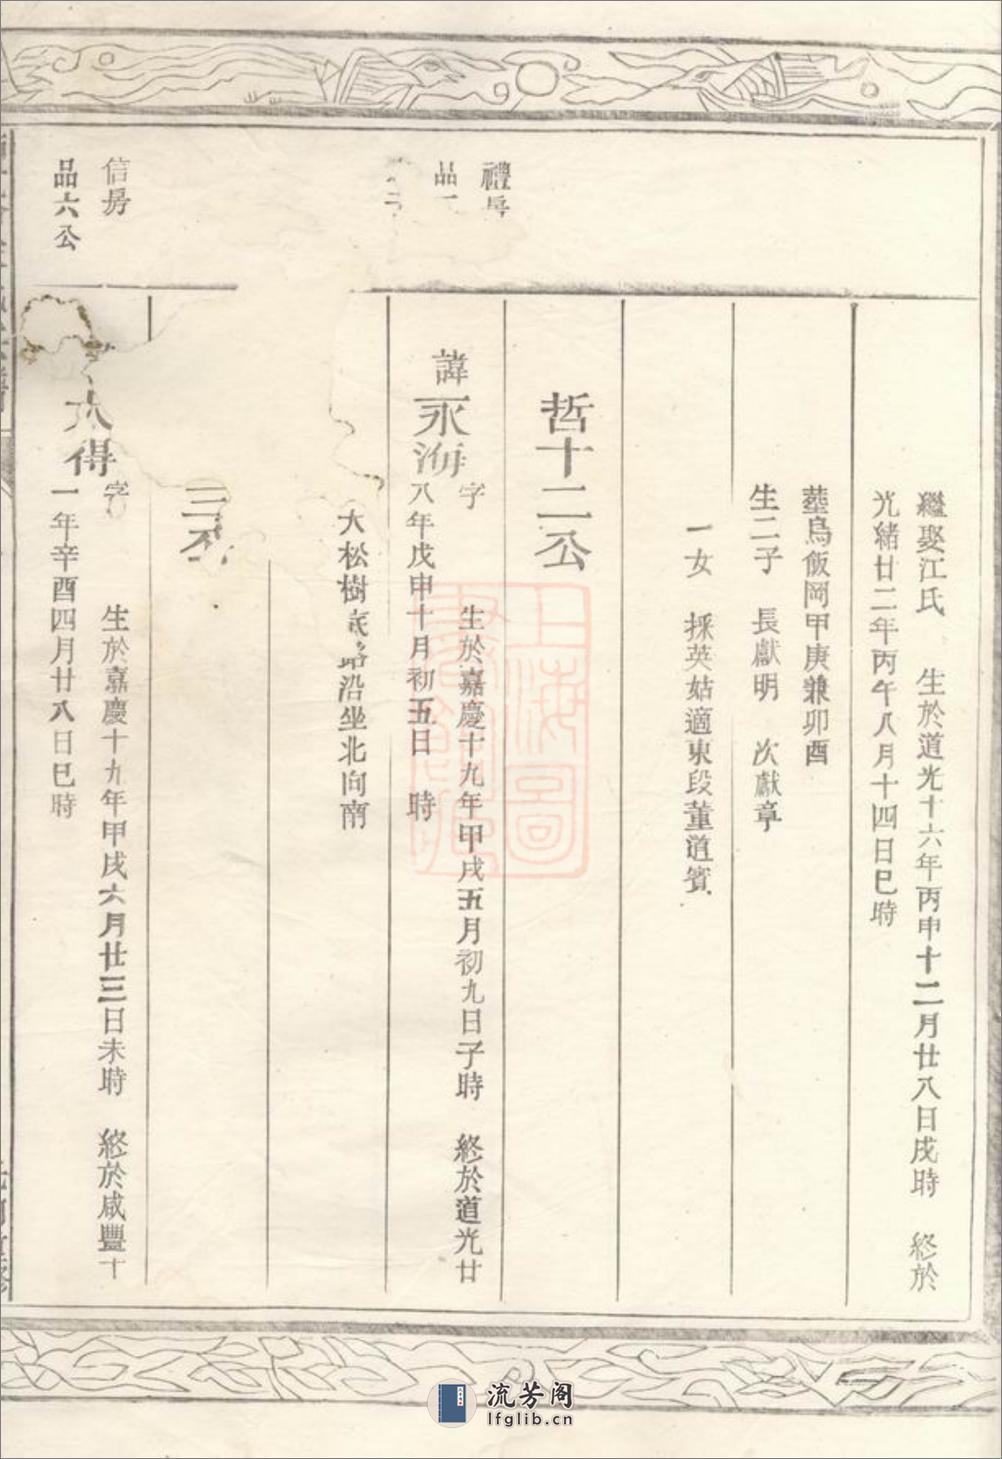 繼娶江氏 生於道光十六年丙申十二月廿八日戌時 終於
光緒廿二年丙午八月十四日巳時
塟烏飯岡甲庚兼卯酉
生二子 長獻明 次獻章
一女 採英姑適東段董道賓
哲十二公
禮房
品
諱永海
字 生於嘉慶十九年甲戌五月初九日子時 終於道光廿
八年戊申十月初五日 時
大松樹底路沿坐北向南
三
信房
品六公
得
字 生於嘉慶十九年甲戌六月廿三日未時 終於咸豐十
一年辛酉四月廿八日巳時
上海圖
流芳阁
lfglib.cn